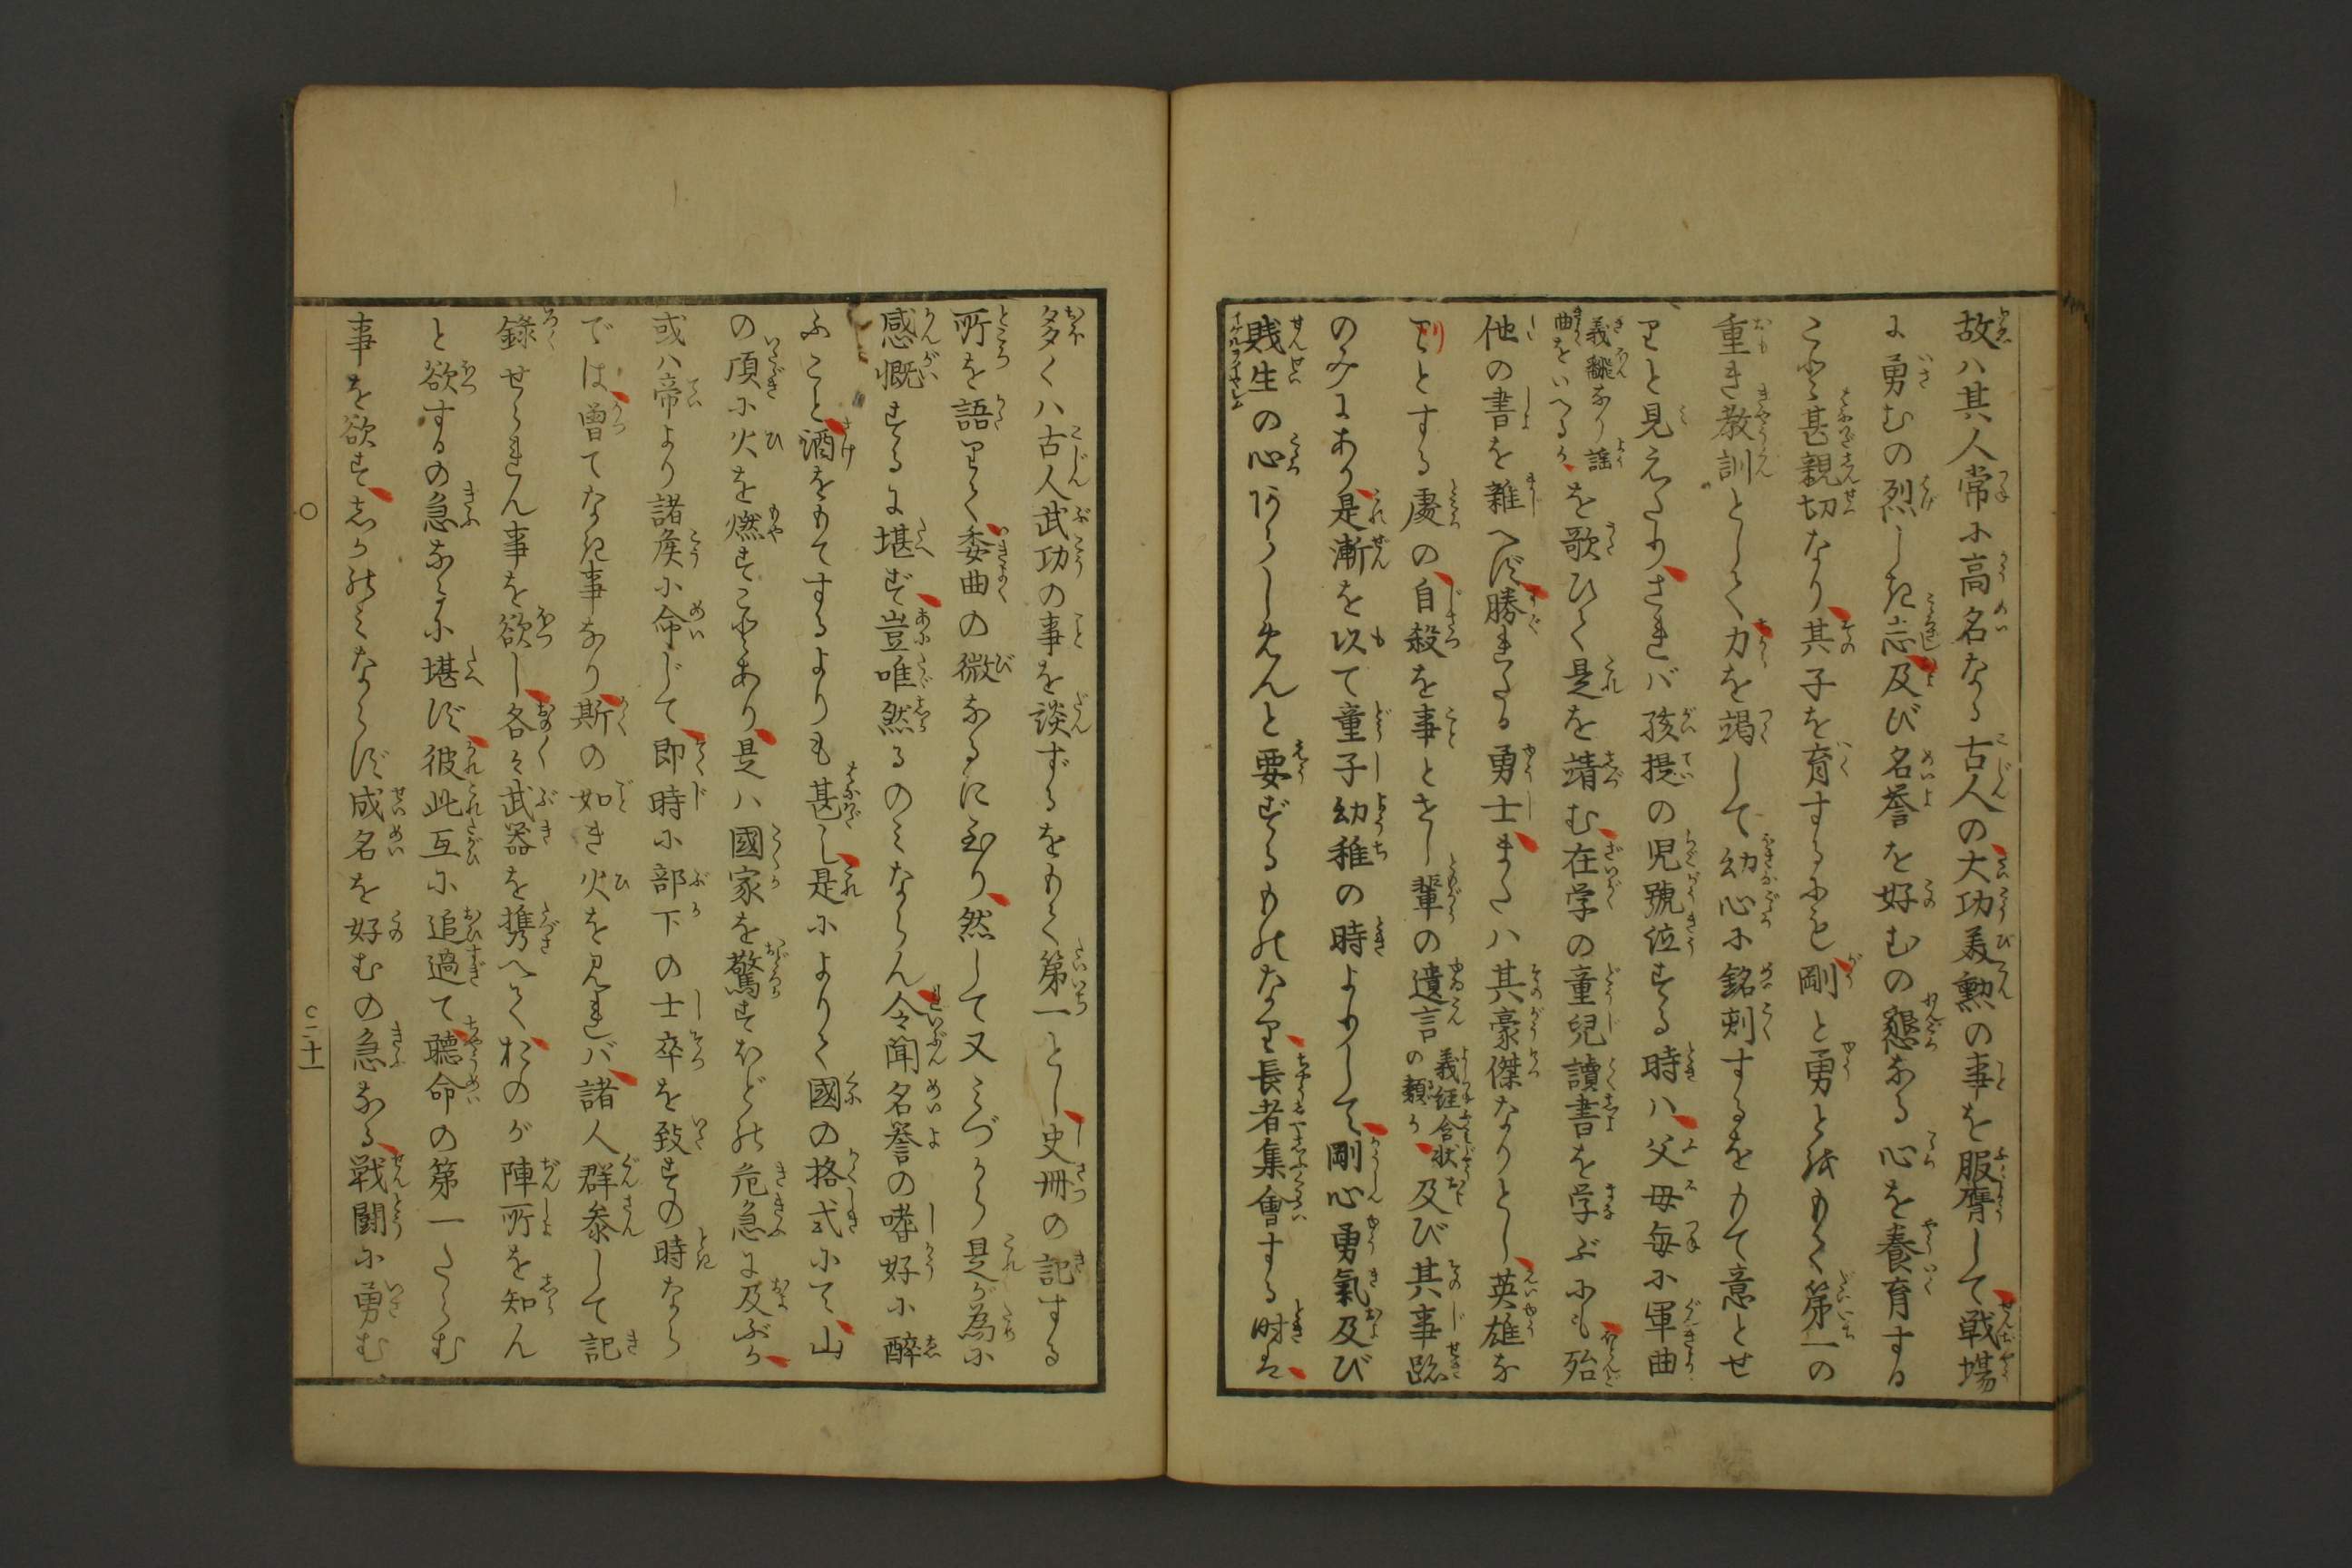 故ハ其人常に高名なる古人の大功美勲の事を服膺して戦場
に勇むの烈しき志及び名誉を好むの懇なる心を養育する
こと甚親切なり其子を育するにも剛と勇とをもて第一の
重き教訓として力を竭して幼心に銘刺するをもて意とせ
りと見えたりされバ孩提の児號位する時ハ父母毎に軍曲
義なり謡
曲をいへるか
を歌ひて是を靖む在学の童兒讀書を学ぶにも殆
他の書を雑へず勝れたる勇士またハ其豪傑なりとし英雄な
りとする處の自殺を事とせし輩の遺言
義経含状
の類か
及び其事跡
のみにあり是漸を以て童子幼稚の時よりして剛心勇氣及び
賤生の心あらしめんと要するものなり長者集會する時は
多くハ古人武功の事を談ずるをもて第一とし史冊の記する
所を語りて委曲の微なるに至り然して又みづから是が為に
感慨するに堪ず豈唯然るのみならん令聞名誉の嗜好に醉
ふこと酒をもてするよりも甚し是によりて國の格式にて山
の頂に火を燃すことあり是ハ國家を驚すほどの危急に及ぶか
或ハ帝より諸侯に命じて即時に部下の士卒を致すの時なら
では曽てなき事なり斯の如き火を見れバ諸人群参して記
録せられん事を欲し各々武器を携へておのが陣所を知ん
と欲するの急なるに堪ず彼此互に追過て聴命の第一たらむ
事を欲すしかのみならず成名を好むの急なる戦闘に勇む
二十一